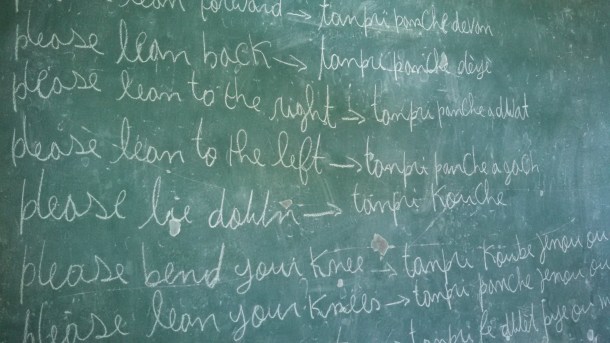 lean forward → tanpri panche devan
please lean back → tanpri panche dèyè
please lean to the right → tanpri panche a dwat
please lean to the left → tanpri panche a gach
please lie down → tanpri kouche
please bend your knee → tanpri koube jenou ou
please lean your knees → tanpri panche jenou ou
tanpri